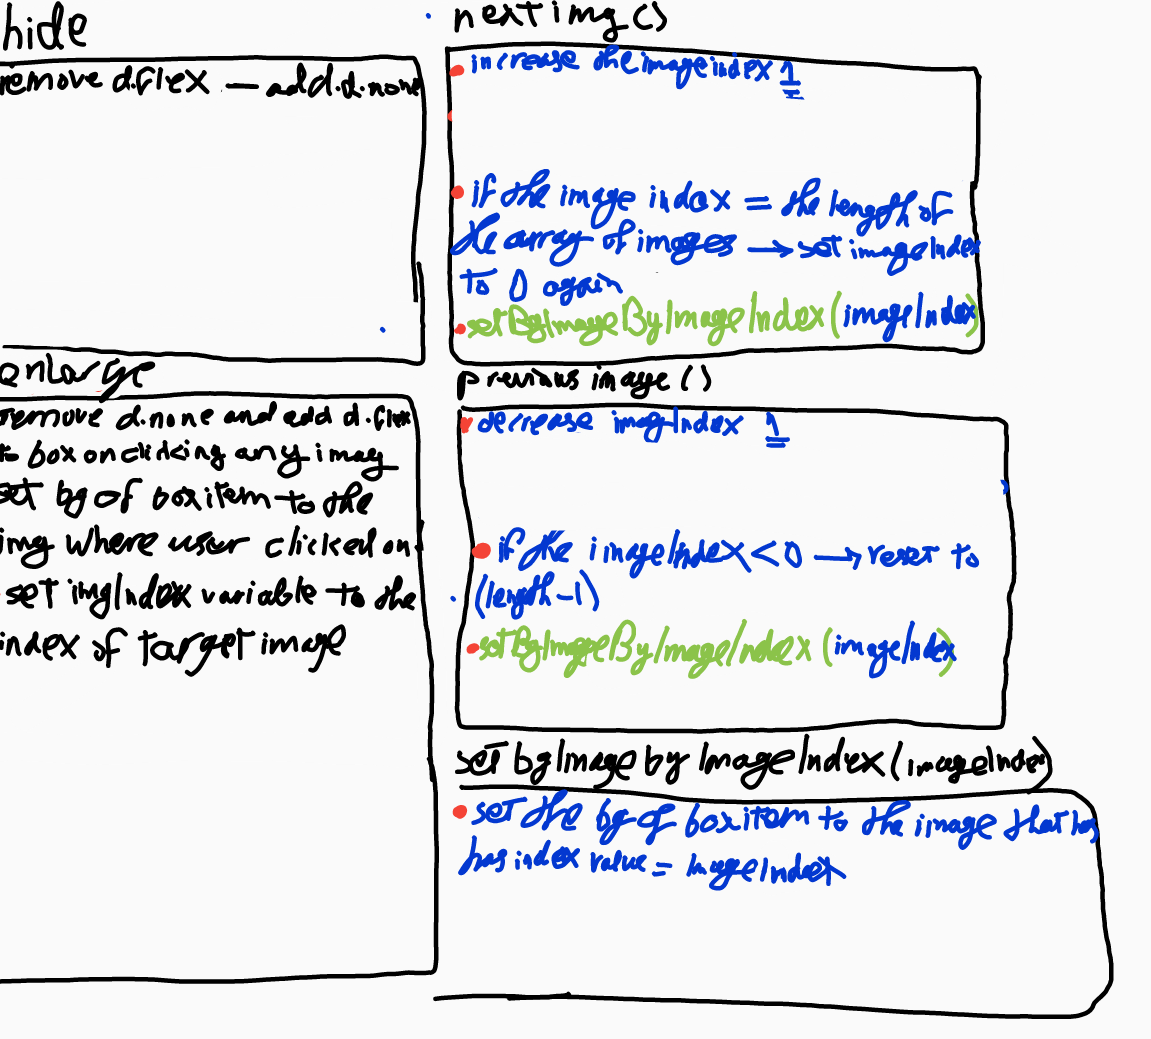 hide
remove d.flex — add.d.none
enlarge
remove d.none and add d.flex
to box on clicking any imag
set bg of box item to the
img where user clicked on
set imgIndex variable to the
index of target image
next img ()
increase the image index 1
if the image index = the length of
the array of images → set imageIndex
to 0 again
setBgImageByImageIndex (imageIndex)
previous image ()
decrease imagIndex 1
if the imageIndex < 0 → reset to
(length -1)
setBgImageByImageIndex (imageIndex)
set bgImage by ImageIndex (imageIndex)
set the bg of box item to the image that has
has index value = imageIndex